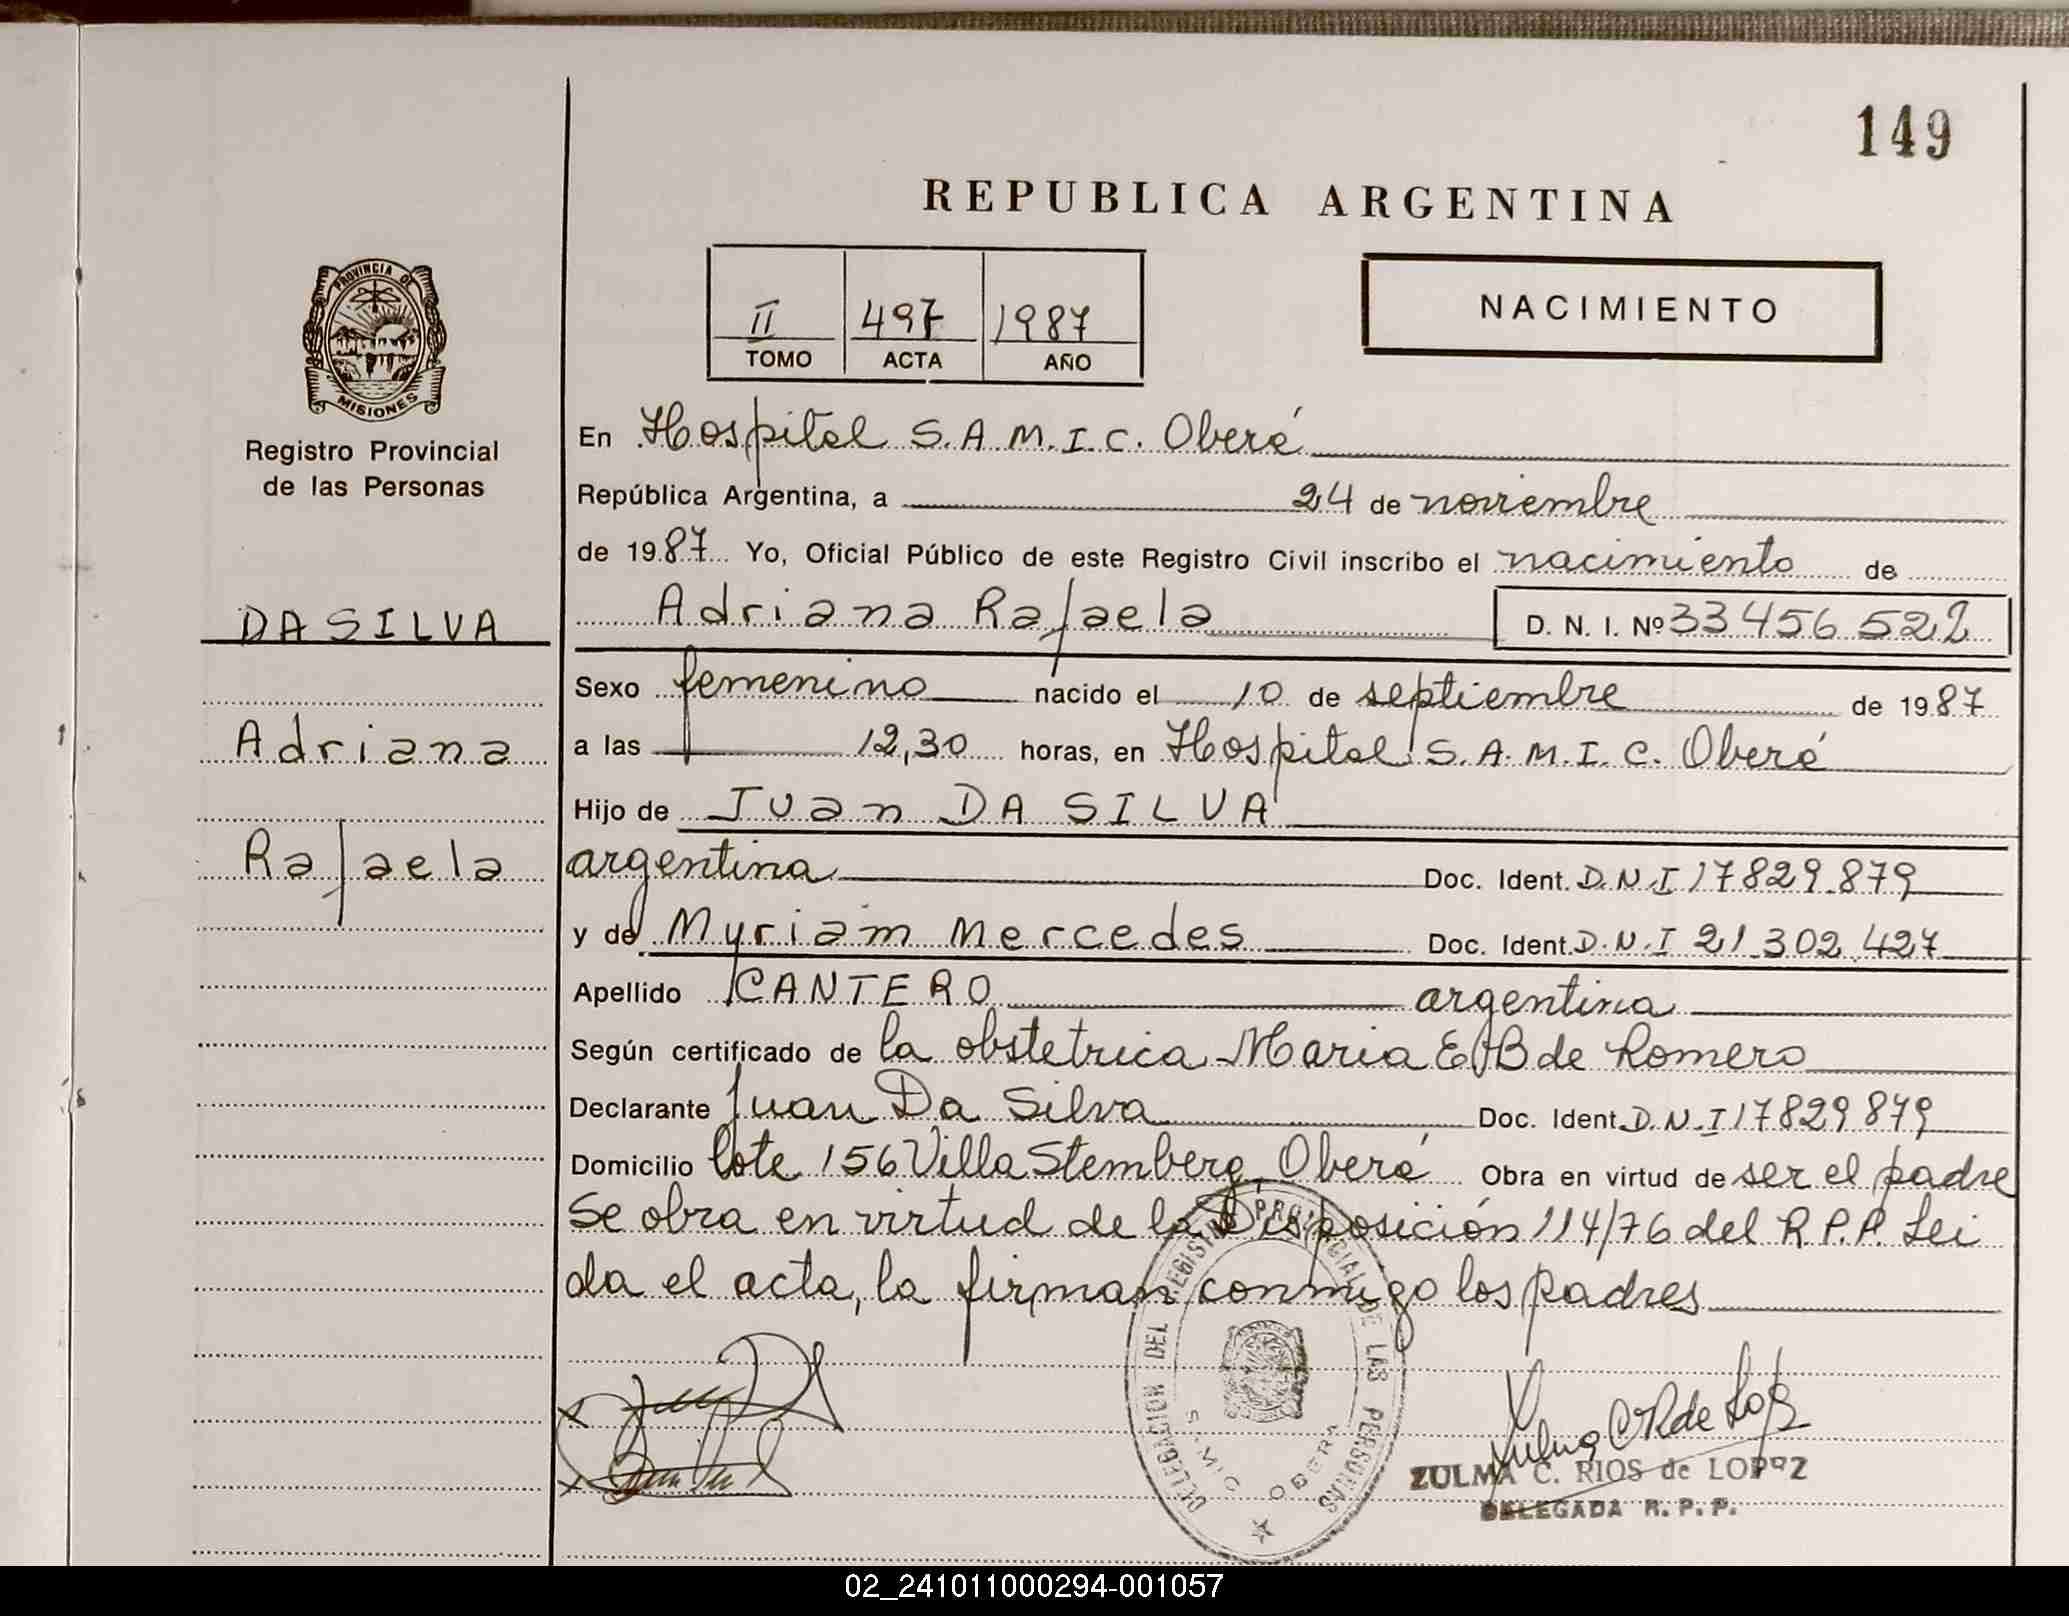 149
REPUBLICA ARGENTINA
II 497 1987
TOMO ACTA AÑO
NACIMIENTO
PROVINCIA DE
MISIONES
Registro Provincial
de las Personas
DA SILVA
Adriana
Rafaela
En Hospital S.A.M.I.C. Oberá
República Argentina, a 24 de noviembre
de 1987 Yo, Oficial Público de este Registro Civil inscribo el nacimiento de
Adriana Rafaela D. N. I. Nº 33 456 522
Sexo femenino nacido el 10 de septiembre de 1987
a las 12,30 horas, en Hospital S.A.M.I.C. Oberá
Hijo de Juan DA SILVA
argentina Doc. Ident. D.N.I 17829.879
y de Myriam Mercedes Doc. Ident. D.N.I 21.302.427
Apellido CANTERO argentina
Según certificado de la obstetrica Maria E B de Romero
Declarante Juan Da Silva Doc. Ident. D.N.I 17829879
Domicilio lote 156 Villa Stemberg, Oberá Obra en virtud de ser el padre
Se obra en virtud de la Disposición 114/76 del R.P.P. Lei
da el acta, la firman conmigo los padres
DELEGACION DEL REGISTRO PROVINCIAL DE LAS PERSONAS
SAMIC OBERA
Zulma C R de Lopez
ZULMA C. RIOS de LOPEZ
DELEGADA R. P. P.
02_241011000294-001057